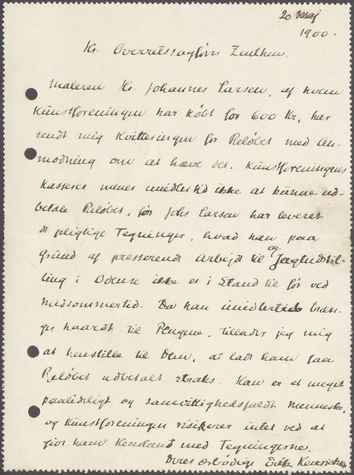 20 Maj
1900.
Hr. Overretssagfører Zeuthen.
Maleren Hr. Johannes Larsen, af hvem
Kunstforeningen har købt for 600 Kr., har
sendt mig Kvitteringen for Beløbet med An-
modning om at hæve det. Kunstforeningens
Kasserer mener imidlertid ikke at kunne ud-
betale Beløbet, før Johs Larsen har leveret
de pligtige Tegninger, hvad han paa
Grund af presserende Arbejde til og Jagtudstil-
ling i Odense ikke er i Stand til før ved
Midsommertid. Da han imidlertid træn-
ger haardt til Pengene, tillader jeg mig
at henstille til Dem, at lade ham faa
Beløbet udbetalt straks. Han er et meget
paalideligt og samvittighedsfuldt Menneske,
og Kunstforeningen risikerer intet ved at
give ham Henstand med Tegningerne.
Deres ærbødige